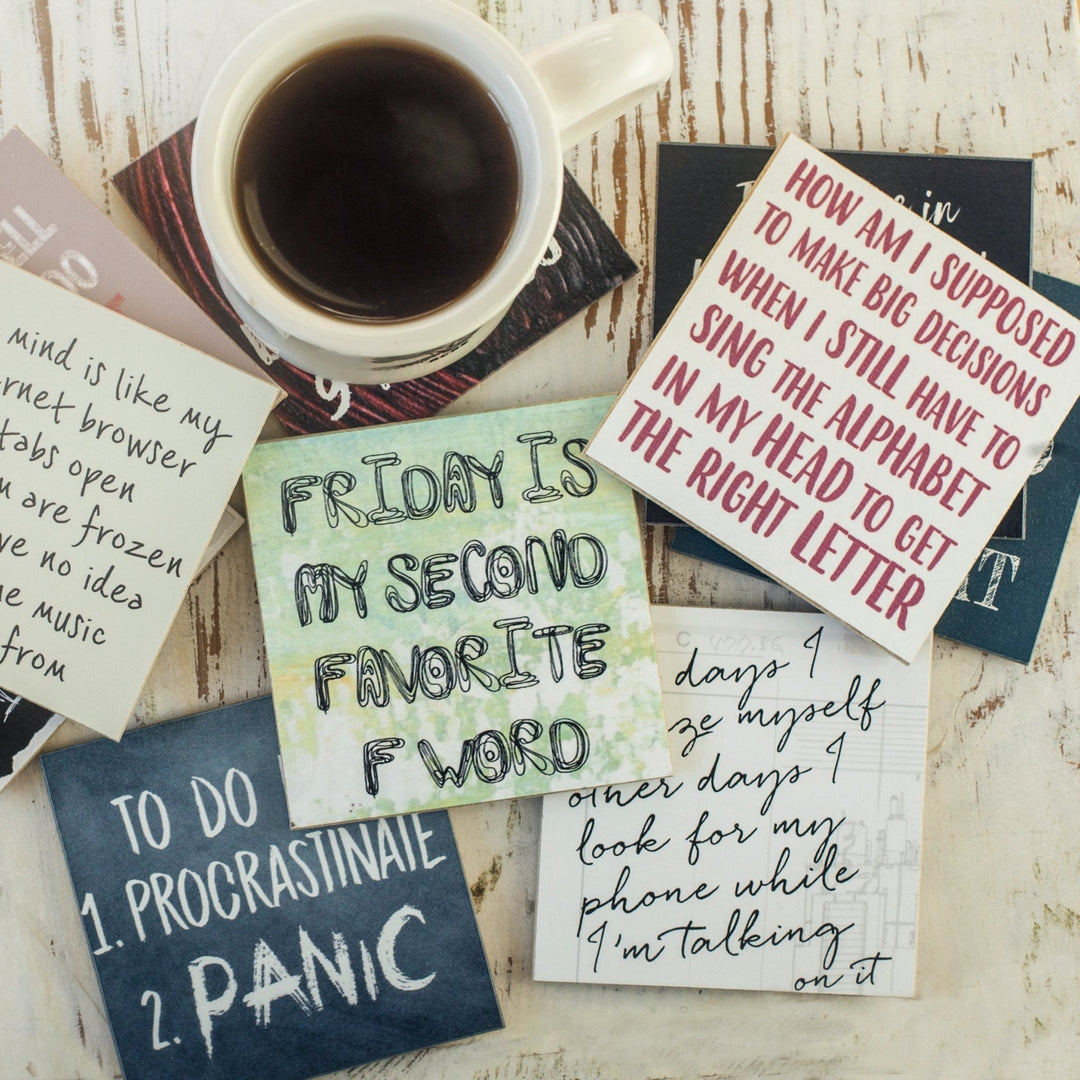 HOW AM I SUPPOSED
TO MAKE BIG DECISIONS
WHEN I STILL HAVE TO
SING THE ALPHABET
IN MY HEAD TO GET
THE RIGHT LETTER
in
mind is like my
browser
tabs open
are frozen
no idea
music
from
FRIDAY IS
MY SECOND
FAVORITE
F WORD
days I
myself
other days I
look for my
phone while
I'm talking
on it
TO DO
1. PROCRASTINATE
2. PANIC